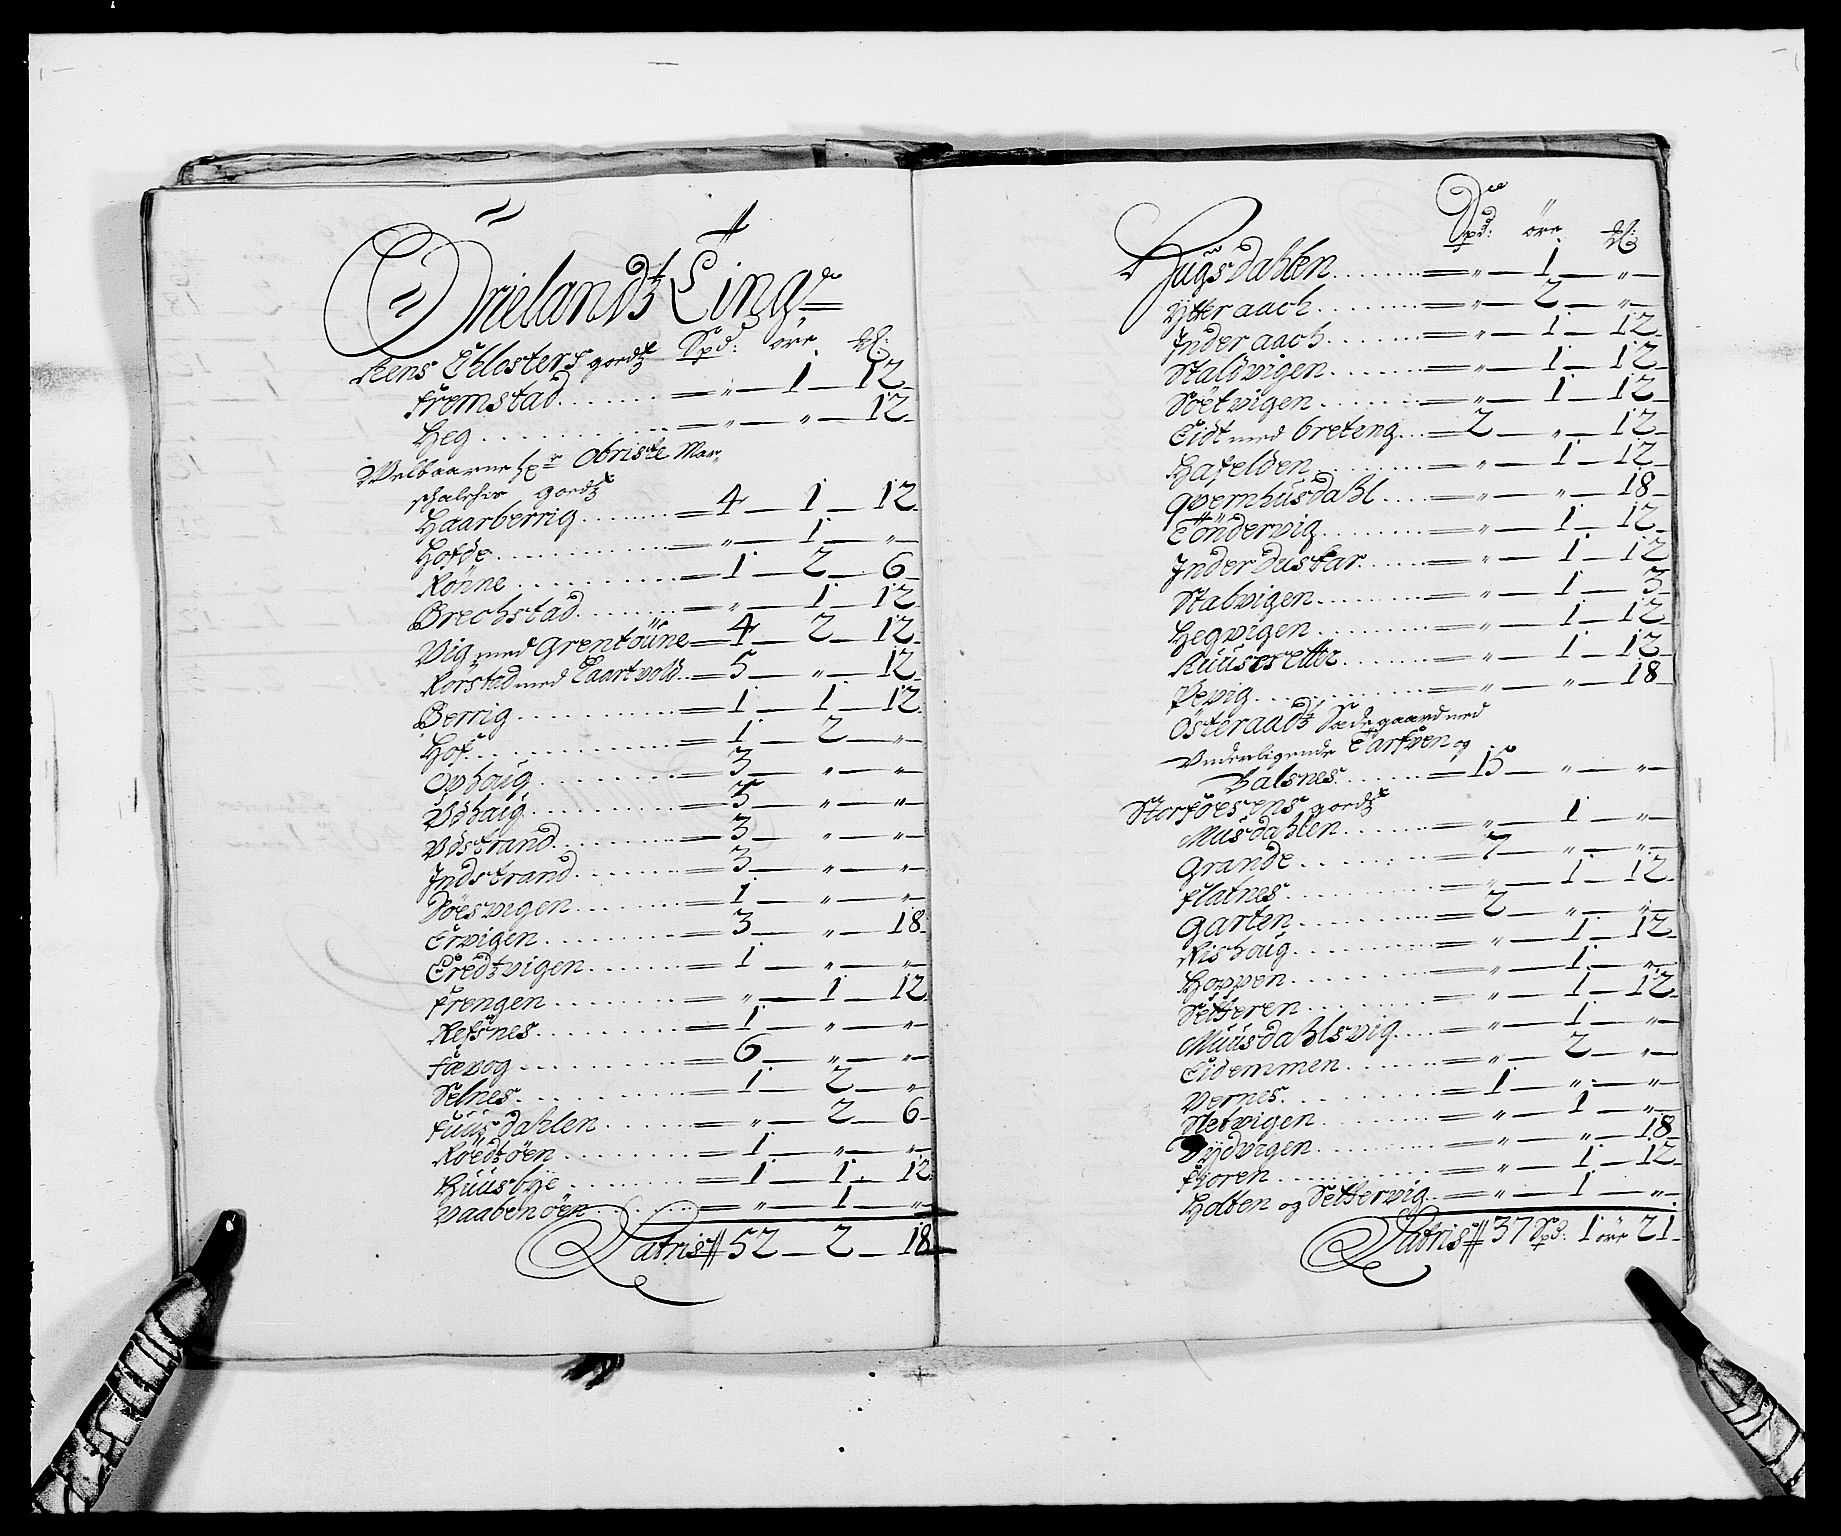 Ørielandtz Ting
Rens Clösters goedtz Spd: öre
Fremstad ....... = „ — 1 — 12
Heg ............ = „ — „ — 12
Welbaarne Hr Obriste Mar„
schalches goedtz
Haarberrig ........ = 4 — 1 — 12
Hofde ............ = „ — 1 — „
Rönne ............ = 1 — 2 — 6
Brechstad ......... = „ — 1 — 12
Vig med Grentöüne = 4 — 2 — 12
Rorstad med Taartvold = 5 — „ — 12
Berrig ............ = 1 — 1 — 12
Hof ............ = 1 — 2 — „
Ophoug ............ = 3 — „ — „
Udhaig ............ = 5 — „ — „
Udstrand ........ = 3 — „ — „
Indstrand ........ = 3 — „ — „
Döesvigen ........ = 1 — „ — „
Ervigen ............ = 3 — „ — 18
Eredtvigen ....... = 1 — „ — „
Frengen ........ = „ — 1 — 12
Refsnes ............ = 1 — „ — „
Fævog ............ = 6 — „ — „
Selnes ............ = 1 — 2 — „
Fuusdahlen ........ = „ — 2 — 6
Röedtöen ........ = 1 — „ — „
Huusbye ............ = 1 — 1 — 12
Vaabenöen ........ = „ — 1 — „
Latris 52 — 2 — 18
Spd: öre
Hugsdahlen ........ = „ — 1 — „
Ytteraach ........ = „ — 2 — „
Inderaach ........ = „ — 1 — 12
Staldvigen ........ = „ — 1 — 12
Söetvigen ........ = „ — 1 — 12
Eidt med breteng ... = 2 — „ — 12
Hafelden ........ = „ — 1 — 12
Qvernhusdahl .... = „ — „ — 18
Töndervig ........ = „ — 1 — 12
Inderduskar ...... = „ — 1 — 12
Stalvigen ........ = „ — 1 — 3
Hegvigen ........ = „ — 1 — 12
Ruussetter ........ = „ — 1 — 12
Pevig ............ = „ — „ — 18
Österaadtz Sædegaard med
Underligende Tarfven og
Balsnes ........ = 15 — „ — „
Storföesens goedtz
Musdahlen ........ = „ — 1 — „
Grande ............ = 7 — „ — „
Flatnes ........ = „ — 1 — 12
Garten ............ = 2 — „ — „
Rishoug ........ = „ — 1 — 12
Hoppen ........ = „ — 1 — „
Setteren ........ = „ — 1 — 12
Muusdahlsvig .... = „ — 1 — „
Eidemmen ........ = „ — 2 — „
Vernes ............ = 1 — „ — „
Netvigen ........ = „ — 1 — „
Dydvigen ........ = „ — „ — 18
Fioren ............ = „ — 1 — 12
Holten og Settervig = „ — 1 — „
Latris 37 Spd: 1 öre 21